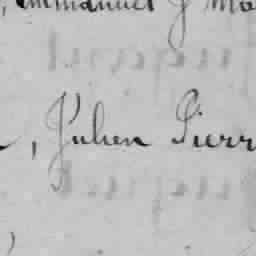 , Emmanuel J Ma
, Julien Pierr